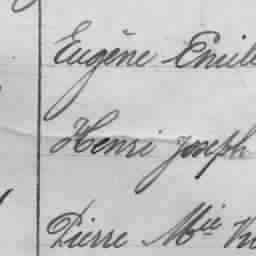 Eugène Emile
Henri Joseph
Pierre Mie